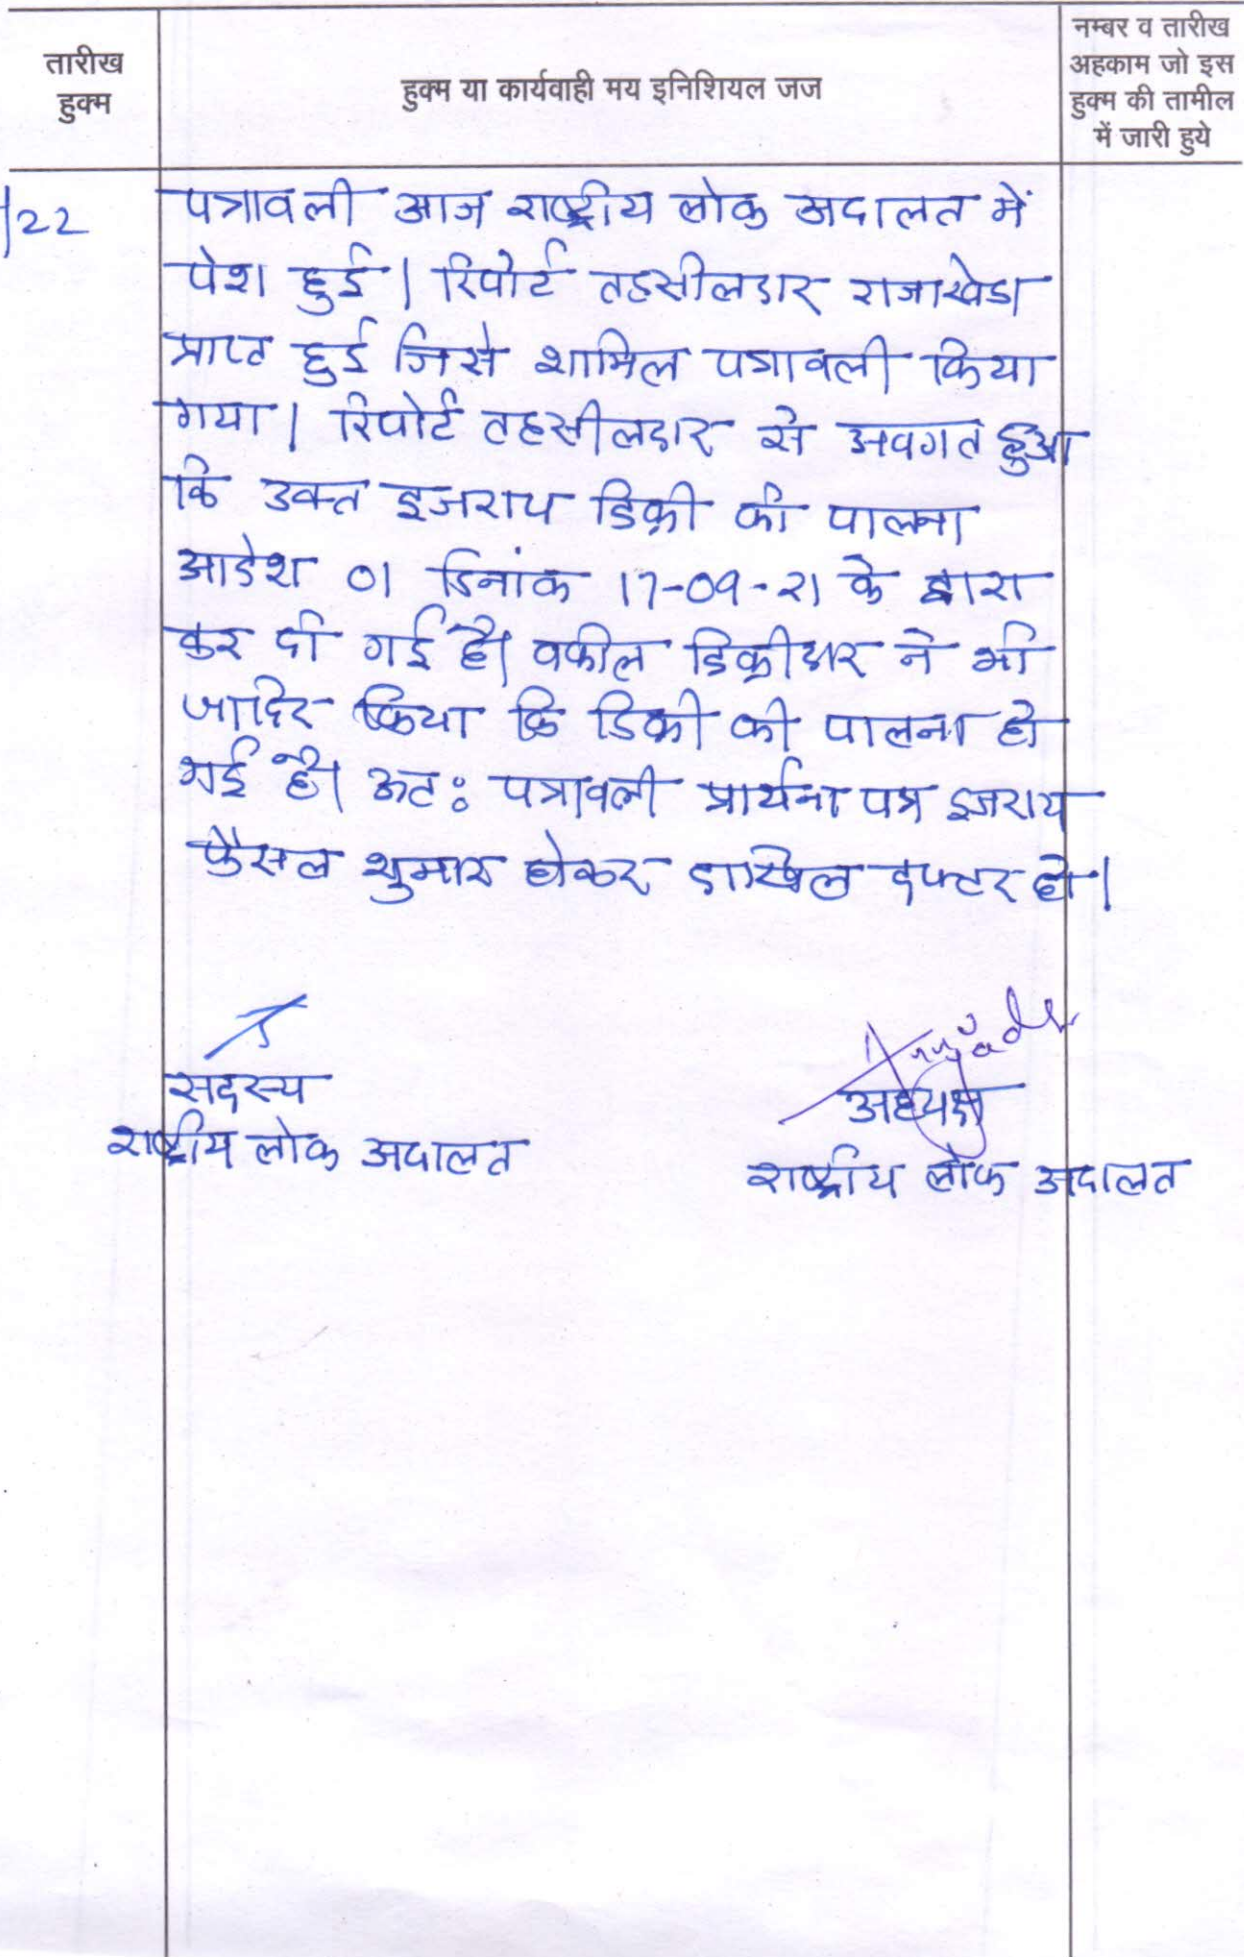 तारीख
हुक्म
हुक्म या कार्यवाही मय इनिशियल जज
नम्बर व तारीख
अहकाम जो इस
हुक्म की तामील
में जारी हुये
/22
पत्रावली आज राष्ट्रीय लोक अदालत में
पेश हुई। रिपोर्ट तहसीलदार राजाखेडा
प्राप्त हुई जिसे शामिल पत्रावली किया
गया। रिपोर्ट तहसीलदार से अवगत हुआ
कि उक्त इजराय डिक्री की पालना
आदेश 01 दिनांक 17-09-21 के द्वारा
कर दी गई है। वकील डिक्रीदार ने भी
जाहिर किया कि डिक्री की पालना हो
गई है। अतः पत्रावली प्रार्थना पत्र इजराय
फैसल शुमार होकर दाखिल दफ्तर हो।
सदस्य
राष्ट्रीय लोक अदालत
अध्यक्ष
राष्ट्रीय लोक अदालत